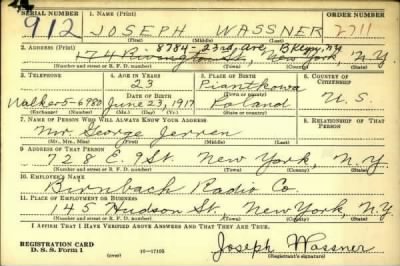 SERIAL NUMBER 1. NAME (Print) ORDER NUMBER
912 JOSEPH WASSNER 2711
(First) (Middle) (Last)
2. ADDRESS (Print) 8784-23rd Ave, Bklyn, NY
174 Rivington St, New York, N.Y.
(Number and street or R. F. D. number) (Town) (County) (State)
3. TELEPHONE 4. AGE IN YEARS 5. PLACE OF BIRTH 6. COUNTRY OF CITIZENSHIP
23 Piantkowa
DATE OF BIRTH (Town or county)
Walker 5-6980 June 23, 1917 Poland U.S.
(Exchange) (Number) (Mo.) (Day) (Yr.) (State or country)
7. NAME OF PERSON WHO WILL ALWAYS KNOW YOUR ADDRESS 8. RELATIONSHIP OF THAT PERSON
Mr. George Jerren
(Mr., Mrs., Miss) (First) (Middle) (Last)
9. ADDRESS OF THAT PERSON
728 E 9 St. New York, N.Y
(Number and street or R. F. D. number) (Town) (County) (State)
10. EMPLOYER'S NAME
Birnbach Radio Co.
11. PLACE OF EMPLOYMENT OR BUSINESS
145 Hudson St. New York, N.Y.
(Number and street or R. F. D. number) (Town) (County) (State)
I AFFIRM THAT I HAVE VERIFIED ABOVE ANSWERS AND THAT THEY ARE TRUE.
REGISTRATION CARD
D. S. S. Form 1 16-17105 Joseph Wassner
(Registrant's signature)